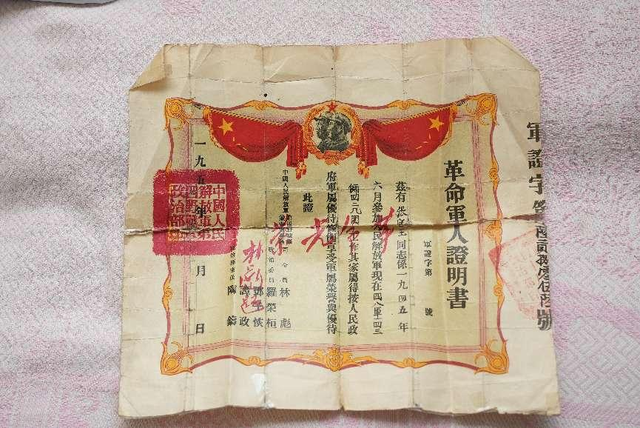 軍證字第
號
革命軍人證明書
軍證字第 號
茲有張 同志係一九四五年
六月參加人民解放軍現在四 軍一四三
師四二九團工作其家屬得按人民政
府軍屬優待條例享受軍屬榮譽與優待
此證
光荣
中國人民解放軍
林彪
羅榮桓
鄧子恢
譚政
陶鑄
一九五 年 月 日
中國人民
解放軍第
四野戰軍
政治部